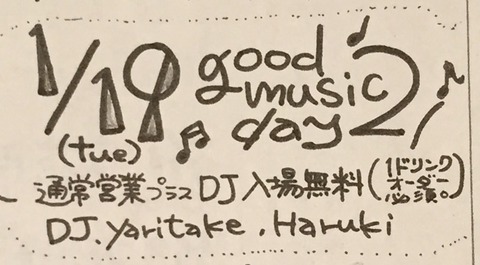 1/19 (tue)
good music day 2
通常営業プラスDJ入場無料(1ドリンクオーダー必須。)
DJ.yaritake.Haruki